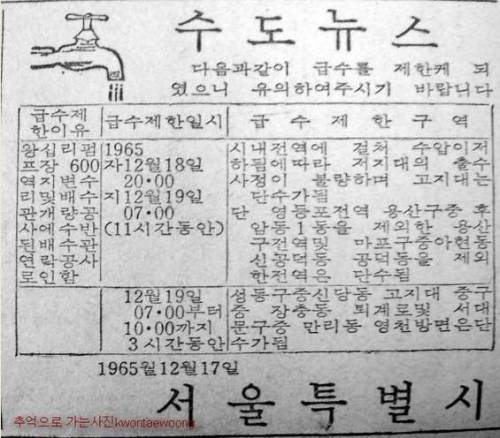 수도뉴스
다음과같이 급수를 제한케 되
였으니 유의하여주시기 바랍니다
급수제
한이유
급수제한일시
급수제한구역
왕십리펌
프장 600
역지변수
리및배수
관개량공
사에수반
된배수관
연락공사
로인함
1965
자12월18일
20·00
지12월19일
07·00
(11시간동안)
시내전역에 걸쳐 수압이저
하됨에따라 저지대의 출수
사정이 불량하며 고지대는
단수가됨
단 영등포전역 용산구중 후
암동1동을 제외한 용산
구전역및 마포구중아현동
신공덕동 공덕동을 제외
한전역은 단수됨
12월19일
07·00부터
10·00까지
3시간동안
성동구중신당동 고지대 중구
중 장충동 퇴계로및 서대
문구중 만리동 영천방면은단
수가됨
1965월12월17일
서울특별시
추억으로 가는사진kwontaewoong